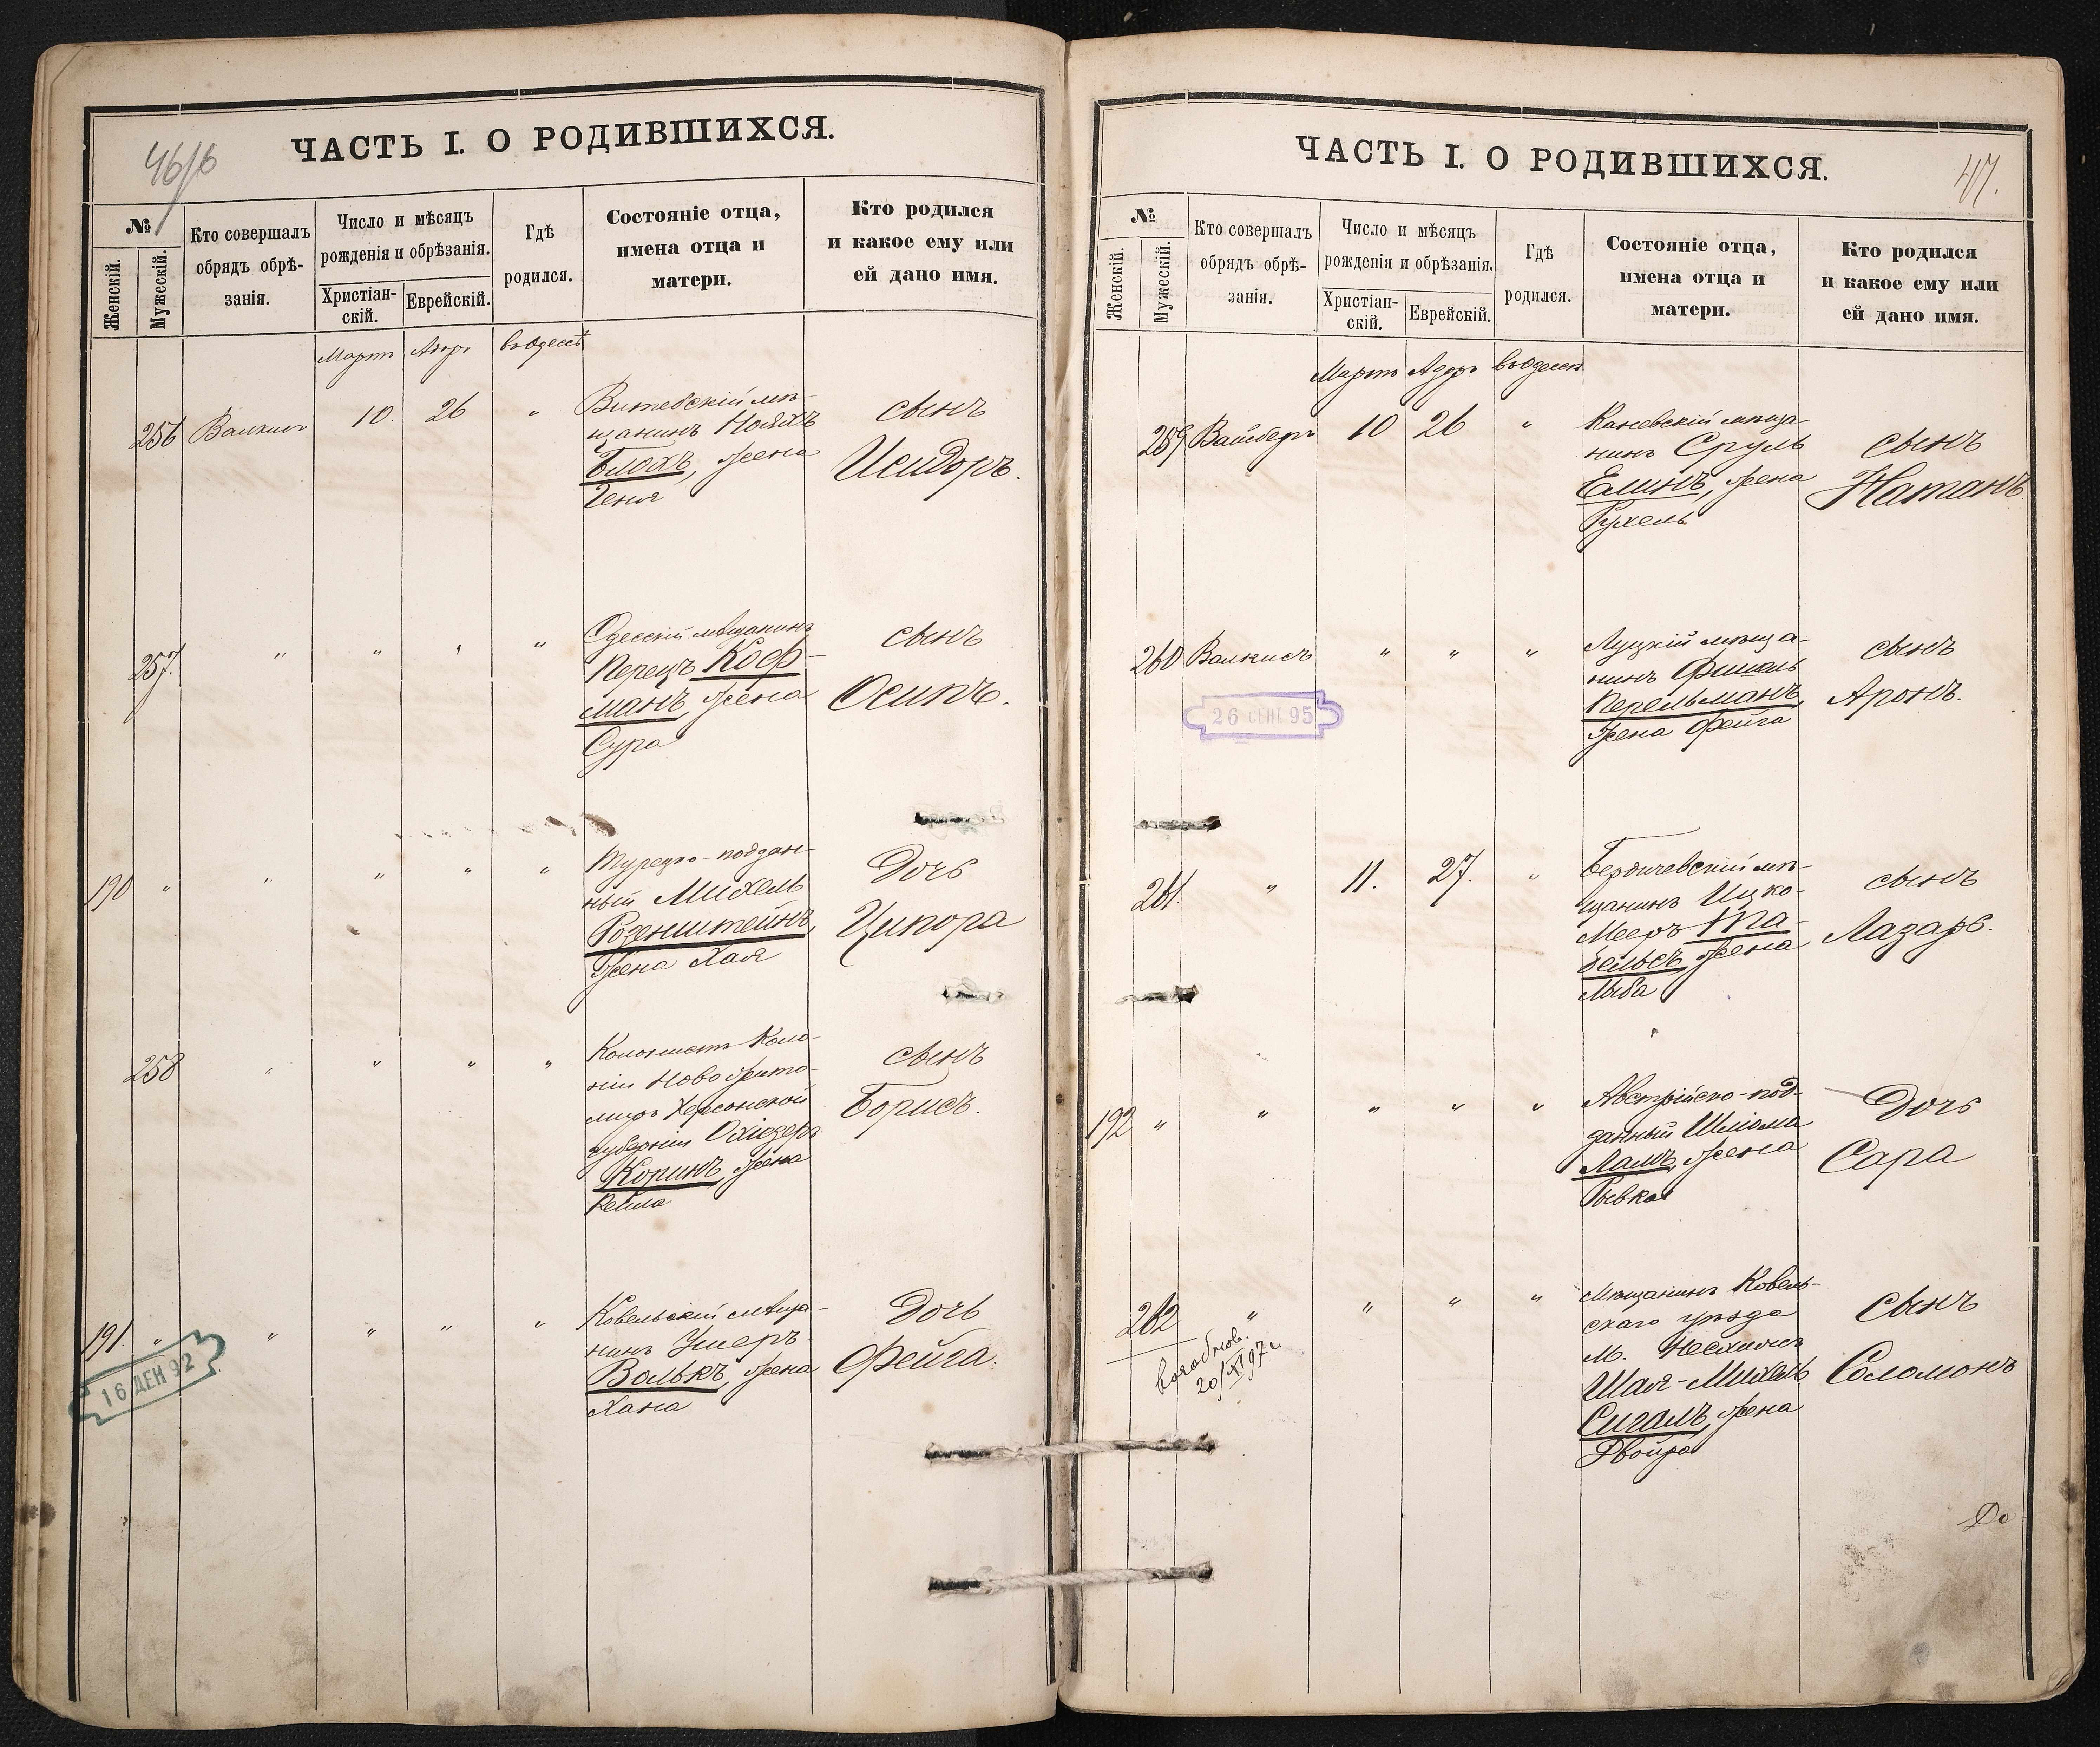 46/б
ЧАСТЬ I. О РОДИВШИХСЯ.
№
Женскій.
Мужескій.
Кто совершалъ
обрядъ обрѣ-
занія.
Число и мѣсяцъ
рожденія и обрѣзанія.
Христіан-
скій.
Еврейскій.
Гдѣ
родился.
Состояніе отца,
имена отца и
матери.
Кто родился
и какое ему или
ей дано имя.
Мартъ Адоръ въ Одессѣ
256 Валкисъ 10. 26 "
Витебскій мѣ-
щанинъ Ноахъ
Блохъ, жена
Геня
сынъ
Исидоръ.
257. " " " "
Одесскій мѣщанинъ
Перецъ Коф-
манъ, жена
Сура
сынъ
Осипъ.
190 " " " " "
Турецко-поддан-
ный Михель
Розенштейнъ,
жена Хая
Дочь
Ципора
258 " " " "
Колонистъ Коло-
ніи Ново Жито-
миръ Херсонской
губерніи
Коринъ, жена
Рейла
сынъ
Борисъ.
191. " " " " "
Ковельскій мѣща-
нинъ Ушеръ
Волькъ, жена
Хана
Дочь
Фейга.
16 ДЕН 92
47.
ЧАСТЬ I. О РОДИВШИХСЯ.
№
Женскій.
Мужескій.
Кто совершалъ
обрядъ обрѣ-
занія.
Число и мѣсяцъ
рожденія и обрѣзанія.
Христіан-
скій.
Еврейскій.
Гдѣ
родился.
Состояніе отца,
имена отца и
матери.
Кто родился
и какое ему или
ей дано имя.
Мартъ Адоръ въ Одессѣ
259 Вайсберъ 10 26 "
Каневскій мѣща-
нинъ Сруль
Елинъ, жена
Рухель
сынъ
Натанъ
260 Валкисъ " " "
Луцкій мѣща-
нинъ Фишель
Перельманъ,
жена Фейга
сынъ
Аронъ.
26 СЕНТ 95
261. " 11. 27. "
Бердичевскій мѣ-
щанинъ Ицко-
Мееръ Та-
бельсъ, жена
Либа
сынъ
Лазарь.
192 " " " " "
Австрійско-под-
данный Шлiома
Ламъ, жена
Рывка
Дочь
Сара
262 " " " "
возобнов.
20/XI 97 г.
Мѣщанинъ Ковель-
скаго уѣзда
м.
Шая-Михель
Сигалъ, жена
Двойра
сынъ
Соломонъ
До